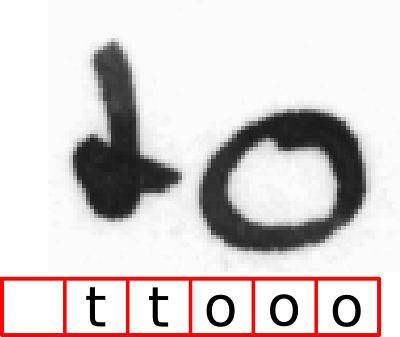 to
ttooo